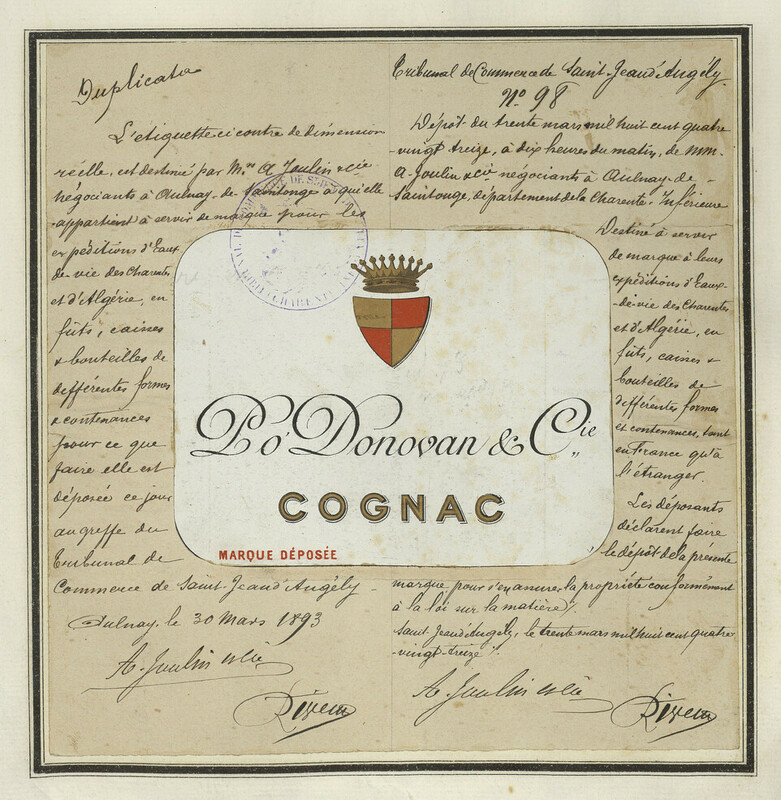 Duplicata
L'étiquette ci contre de dimension
réelle, est destiné par Mrs A Joulin & Cie
négociants à Aulnay de Saintonge à qui elle
appartient à servir de marque pour les
expéditions d'Eaux
de-vie des Charentes
et d'Algérie, en
fûts, caisses
& bouteilles de
différentes formes
& contenances
pour ce que
faire elle est
déposée ce jour
au greffe du
Tribunal de
Commerce de Saint-Jean d'Angély-
Aulnay, le 30 Mars 1893
A. Joulin & Cie
Tribunal de Commerce de Saint Jean d'Angély
No 98
Dépôt du trente mars mil huit cent quatre
-vingt treize, à dix heures du matin, de MM.
A. Joulin & Cie négociants à Aulnay de-
Saintonge, département de la Charente-Inférieure
Destiné à servir
de marque à leurs
expéditions d'Eaux-
-de-vie des Charentes
et d'Algérie, en
fûts, caisses &
bouteilles de
différentes formes
et contenances, tant
en France qu'à
l'étranger.
Les déposants
déclarent faire
le dépôt de la présente
marque pour s'en assurer la propriété conformément
à la loi sur la matière/.
Saint Jean d'Angély, le trente mars mil huit cent quatre
-vingt-treize/.
A. Joulin & Cie
P. o'Donovan & Cie
COGNAC
MARQUE DÉPOSÉE